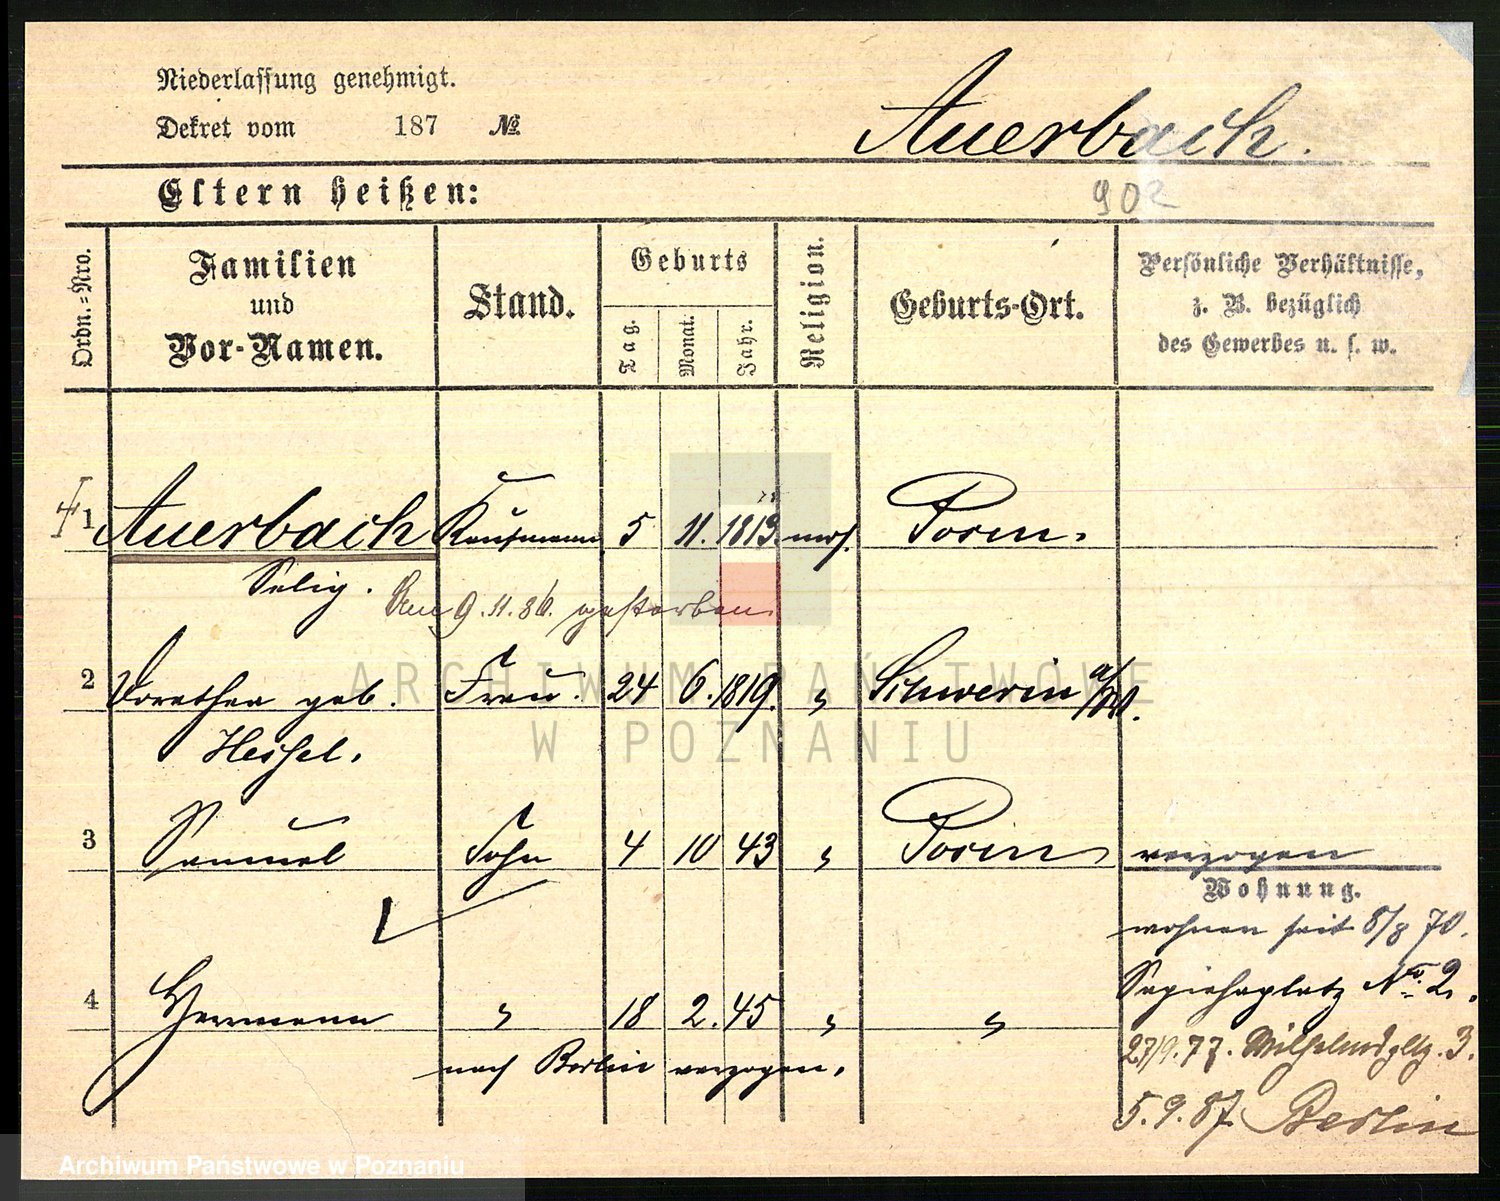 Niederlassung genehmigt.
Dekret vom 187 №
Auerbach.
Eltern heißen:
902
Ordn.=Nro.
Familien und Vor-Namen.
Stand.
Geburts
Tag.
Monat.
Jahr.
Religion.
Geburts-Ort.
Persönliche Verhältnisse,
z. B. bezüglich
des Gewerbes u. s. w.
1 Auerbach Kaufmann 5 11. 1813. mos. Posen.
Selig.
Am 9.11.86. gestorben.
2 Dorothea geb. Frau. 24 6. 1819. " Schwerin a/W.
Heshel.
3 Samuel Sohn 4 10 43 " Posen verzogen
Wohnung.
wohnen seit 8/8 70.
Sapiehaplatz No. 2.
4 Hermann " 18 2. 45 " "
27/9.77. Wilhelmspltz. 3.
nach Berlin verzogen.
5.9.87 Berlin
ARCHIWUM PAŃSTWOWE
W POZNANIU
Archiwum Państwowe w Poznaniu